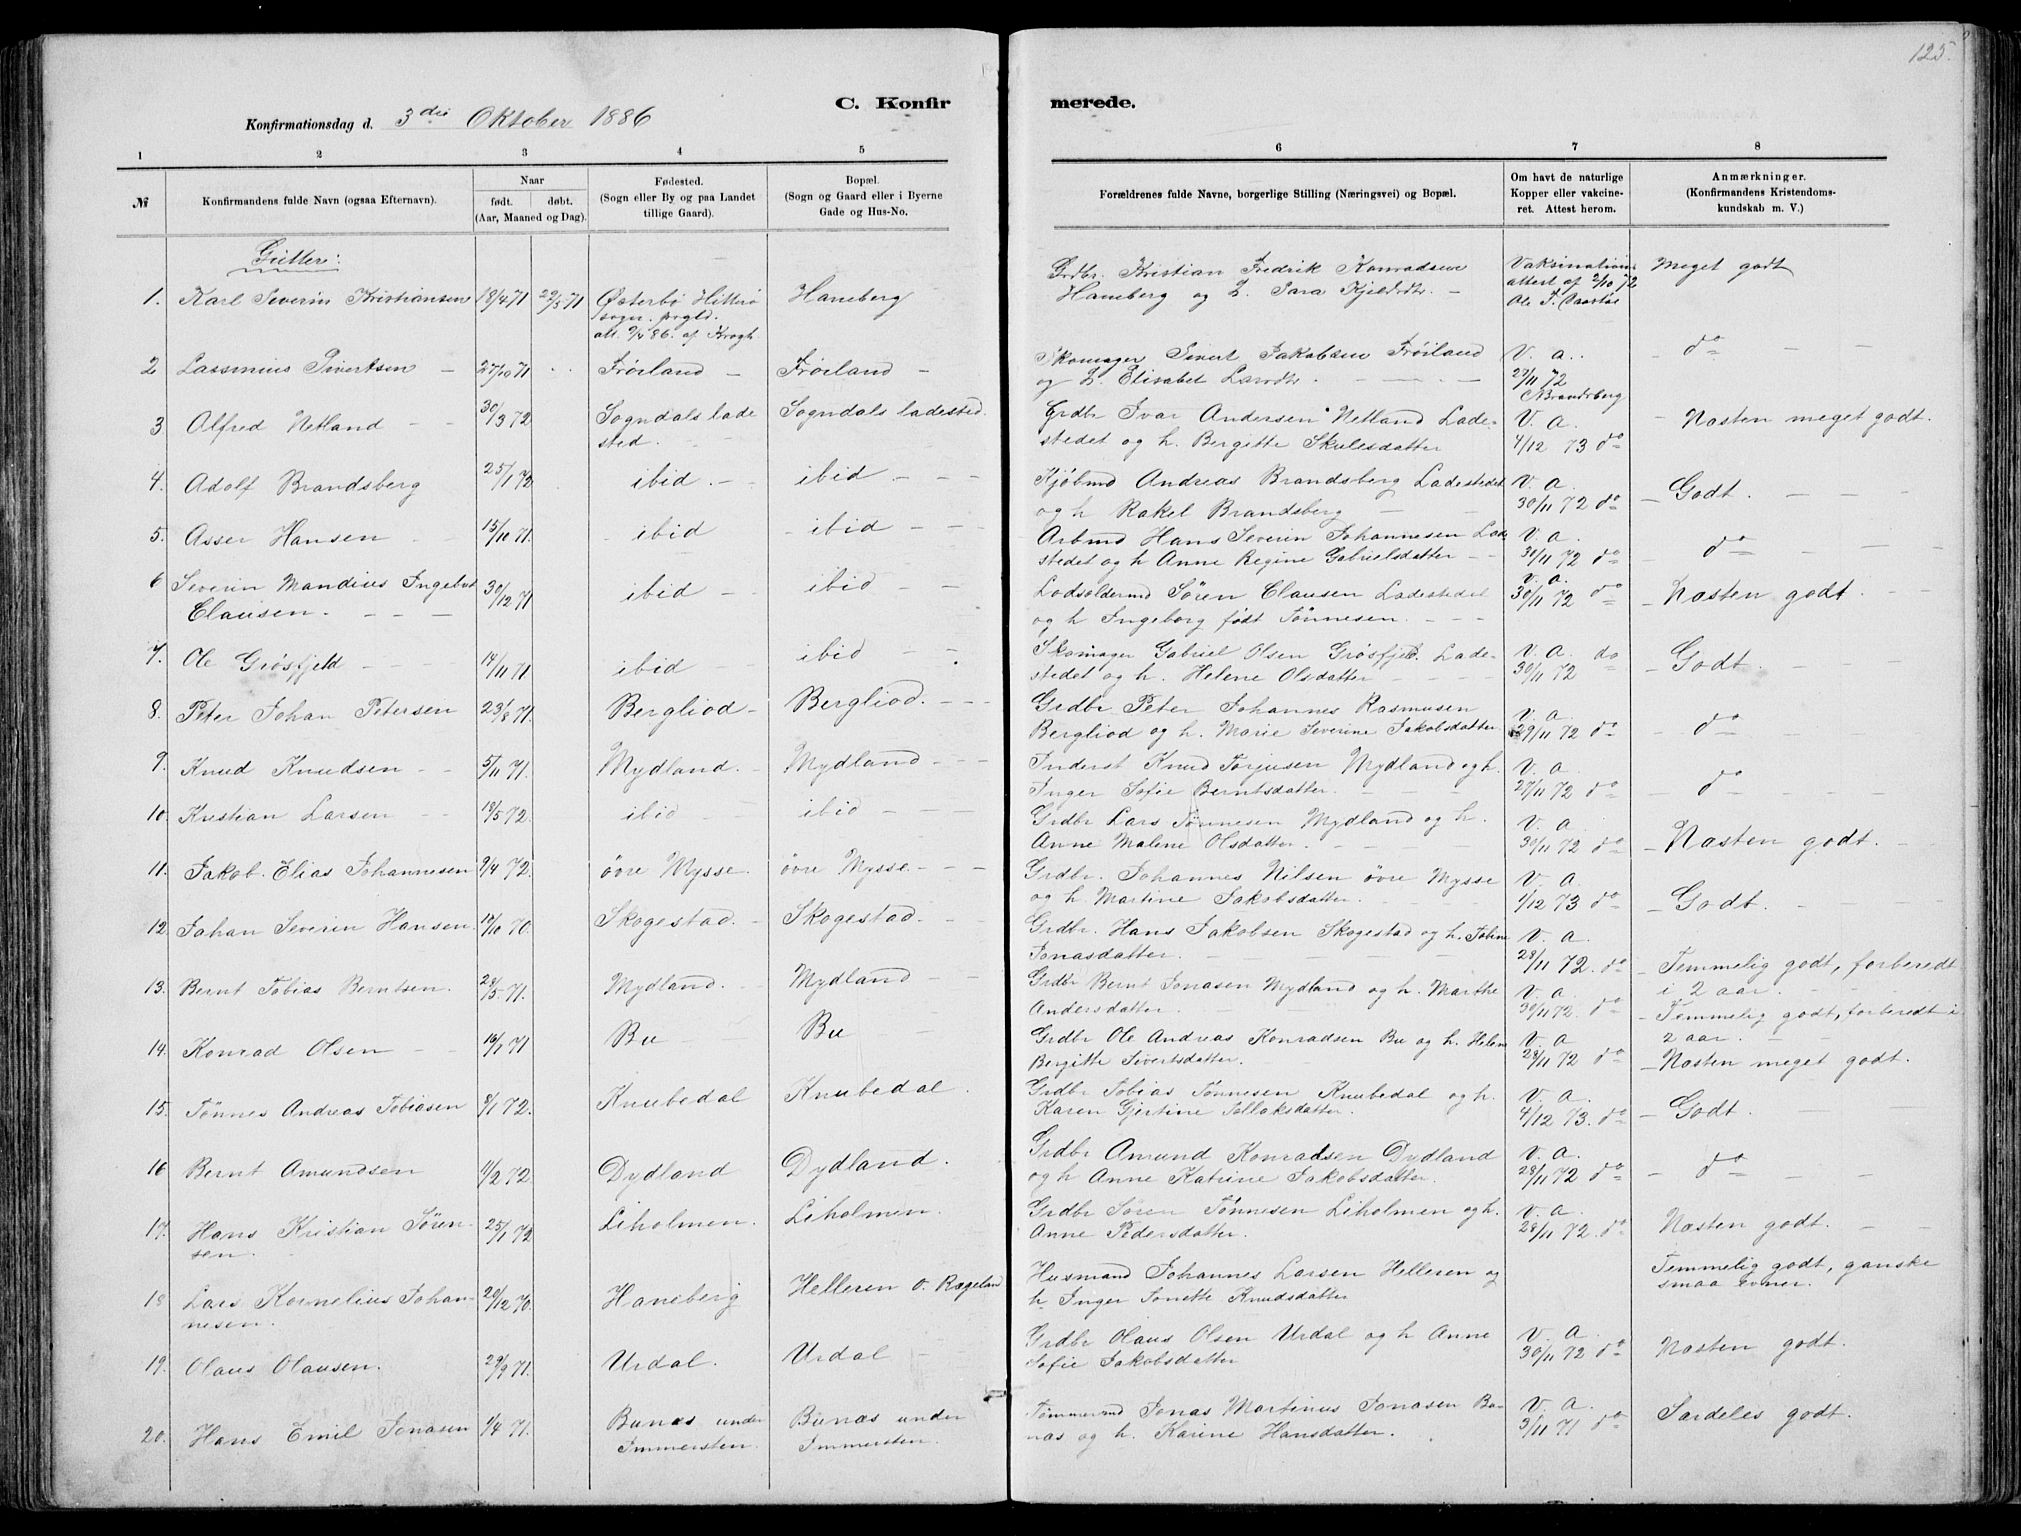 125.
C. Konfir merede.
Konfirmationsdag d. 3die Oktober 1886
1 2 3 4 5 6 7 8
№ Konfirmandens fulde Navn (ogsaa Efternavn). Naar født. døbt. (Aar, Maaned og Dag). Fødested. (Sogn eller By og paa Landet tillige Gaard). Bopæl. (Sogn og Gaard eller i Byerne Gade og Hus-No. Forældrenes fulde Navne, borgerlige Stilling (Næringsvei) og Bopæl. Om havt de naturlige Kopper eller vakcineret. Attest herom. Anmærkninger. (Konfirmandens Kristendomskundskab m. V.)
Gutter:
1. Karl Severin Kristiansen 18/4 71 29/5 71 Østerbø Hitterø Haneberg Grdbr. Kristian Fredrik Konradsen Vaksinations Meget godt
sogn. prgld. Haneberg og h. Sara Kjeldsdtr. attest af 2/10 72
att. 9/4 86. af Krogh Ole T.
2 Lassmius Sivertsen 27/10 71 Frøiland Frøiland Skomager Sivert Jakobsen Frøiland V. a. do
og h. Elisabet Larsdtr. 29/11 72
Brandsberg
3 Alfred Netland 30/3 72 Sogndals lade Sogndals ladested. Grdbr Ivar Andersen Netland Lade- V. a. Næsten meget godt.
sted. stedet og h. Bergitte Skulesdatter 4/12 73 do
4. Adolf Brandsberg 25/1 72 ibid. ibid Kjøbmd Andreas Brandsberg Ladestedet V. a. Godt.
og h Rakel Brandsberg 30/11 72 do
5. Asser Hansen 15/10 71. ibid ibid Arbmd Hans Severin Johannesen Lade V. a. do
stedet og h Anne Regine Gabrielsdatter 30/11 72 do
6 Severin Mandius Ingebret 30/12 71 ibid ibid Lodsoldermd Søren Clausen Ladestedet V. a. 30/11 72 do Næsten godt.
Clausen. og h Ingeborg født Tønnesen.
7. Ole Grøsfjeld 14/11 71 ibid ibid Skomager Gabriel Olsen Grøsfjeld. Lade- V. a. do Godt.
stedet og h. Helene Olsdatter 30/11 72
8. Peter Johan Petersen 23/8 71. Bergliod Bergliod. Grdbr Peter Johannes Rasmusen V. a. do
Bergliod og h. Marie Severine Jakobsdatter 29/11 72 do
9. Knud Knudsen 5/11 71. Mydland. Mydland Inderst Knud Torjusen Mydland og h. V. a. do
Inger Sofie Berntsdatter. 27/11 72 do
10. Kristian Larsen 18/5 72. ibid ibid Grdbr Lars Tønnesen Mydland og h. V. a. Næsten godt.
Anne Malene Olsdatter. 30/11 72 do
11. Jakob Elias Johannesen 9/4 72. øvre Mysse. øvre Mysse. Grdbr. Johannes Nilsen øvre Mysse V. a. Godt.
og h Martine Jakobsdatter. 1/12 73 do
12 Johan Severin Hansen. 12/10 70. Skogestad. Skogestad. Grdbr. Hans Jakobsen Skogestad og h. Tobine V. a. Temmelig godt, forberedt
Jonasdatter. 28/11 72. do i 2 aar.
13. Bernt Tobias Berntsen. 28/5 71. Mydland. Mydland Grdbr Bernt Jonasen Mydland og h. Marthe V. a. Temmelig godt, forberedt i
Andersdatter. 30/11 72. do 2 aar.
14. Konrad Olsen 16/1 71 Bu Bu Grdbr Ole Andreas Konradsen Bu og h. Helene V. a Næsten meget godt.
Bergitte Sivertsdatter. 28/11 72 do
15. Tønnes Andreas Tobiasen 8/1 72. Knubedal Knubedal. Grdbr Tobias Tønnesen Knubedal og h. V. a. Godt.
Karen Gjertine Tollaksdatter. 4/12 73. do
16 Bernt Amundsen 11/2 72. Dydland Dydland. Grdbr Amund Konradsen Dydland V. a. do
og h Anne Katrine Jakobsdatter. 28/11 72 do
17. Hans Kristian Søren- 25/1 72 Liholmen. Liholmen. Grdbr Søren Tønnesen Liholmen og h. V. a. Næsten godt.
sen. Anne Pedersdatter. 28/11 72. do
18 Lars Kornelius Johan- 20/12 70. Haneberg Helleren o. Rægeland Husmand Johannes Larsen Helleren og Temmelig godt, ganske
nesen. h. Inger Tonette Knudsdatter smaa evner.
19. Olaus Olausen. 29/9 71. Urdal. Urdal Grdbr Olaus Olsen Urdal og h Anne V. a. Næsten godt.
Sofie Jakobsdatter 30/11 72 do
20. Hans Emil Jonasen 1/4 71. Bunæs under Bunæs under Tømmermd Jonas Martinus Jonasen Bu- V. a. Særdeles godt.
Immersten. Immersten. næs og h. Karine Hansdatter. 3/11 71 do